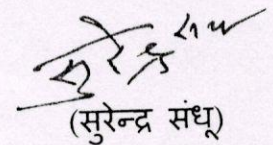 सुरेन्द्र
(सुरेन्द्र संधू)